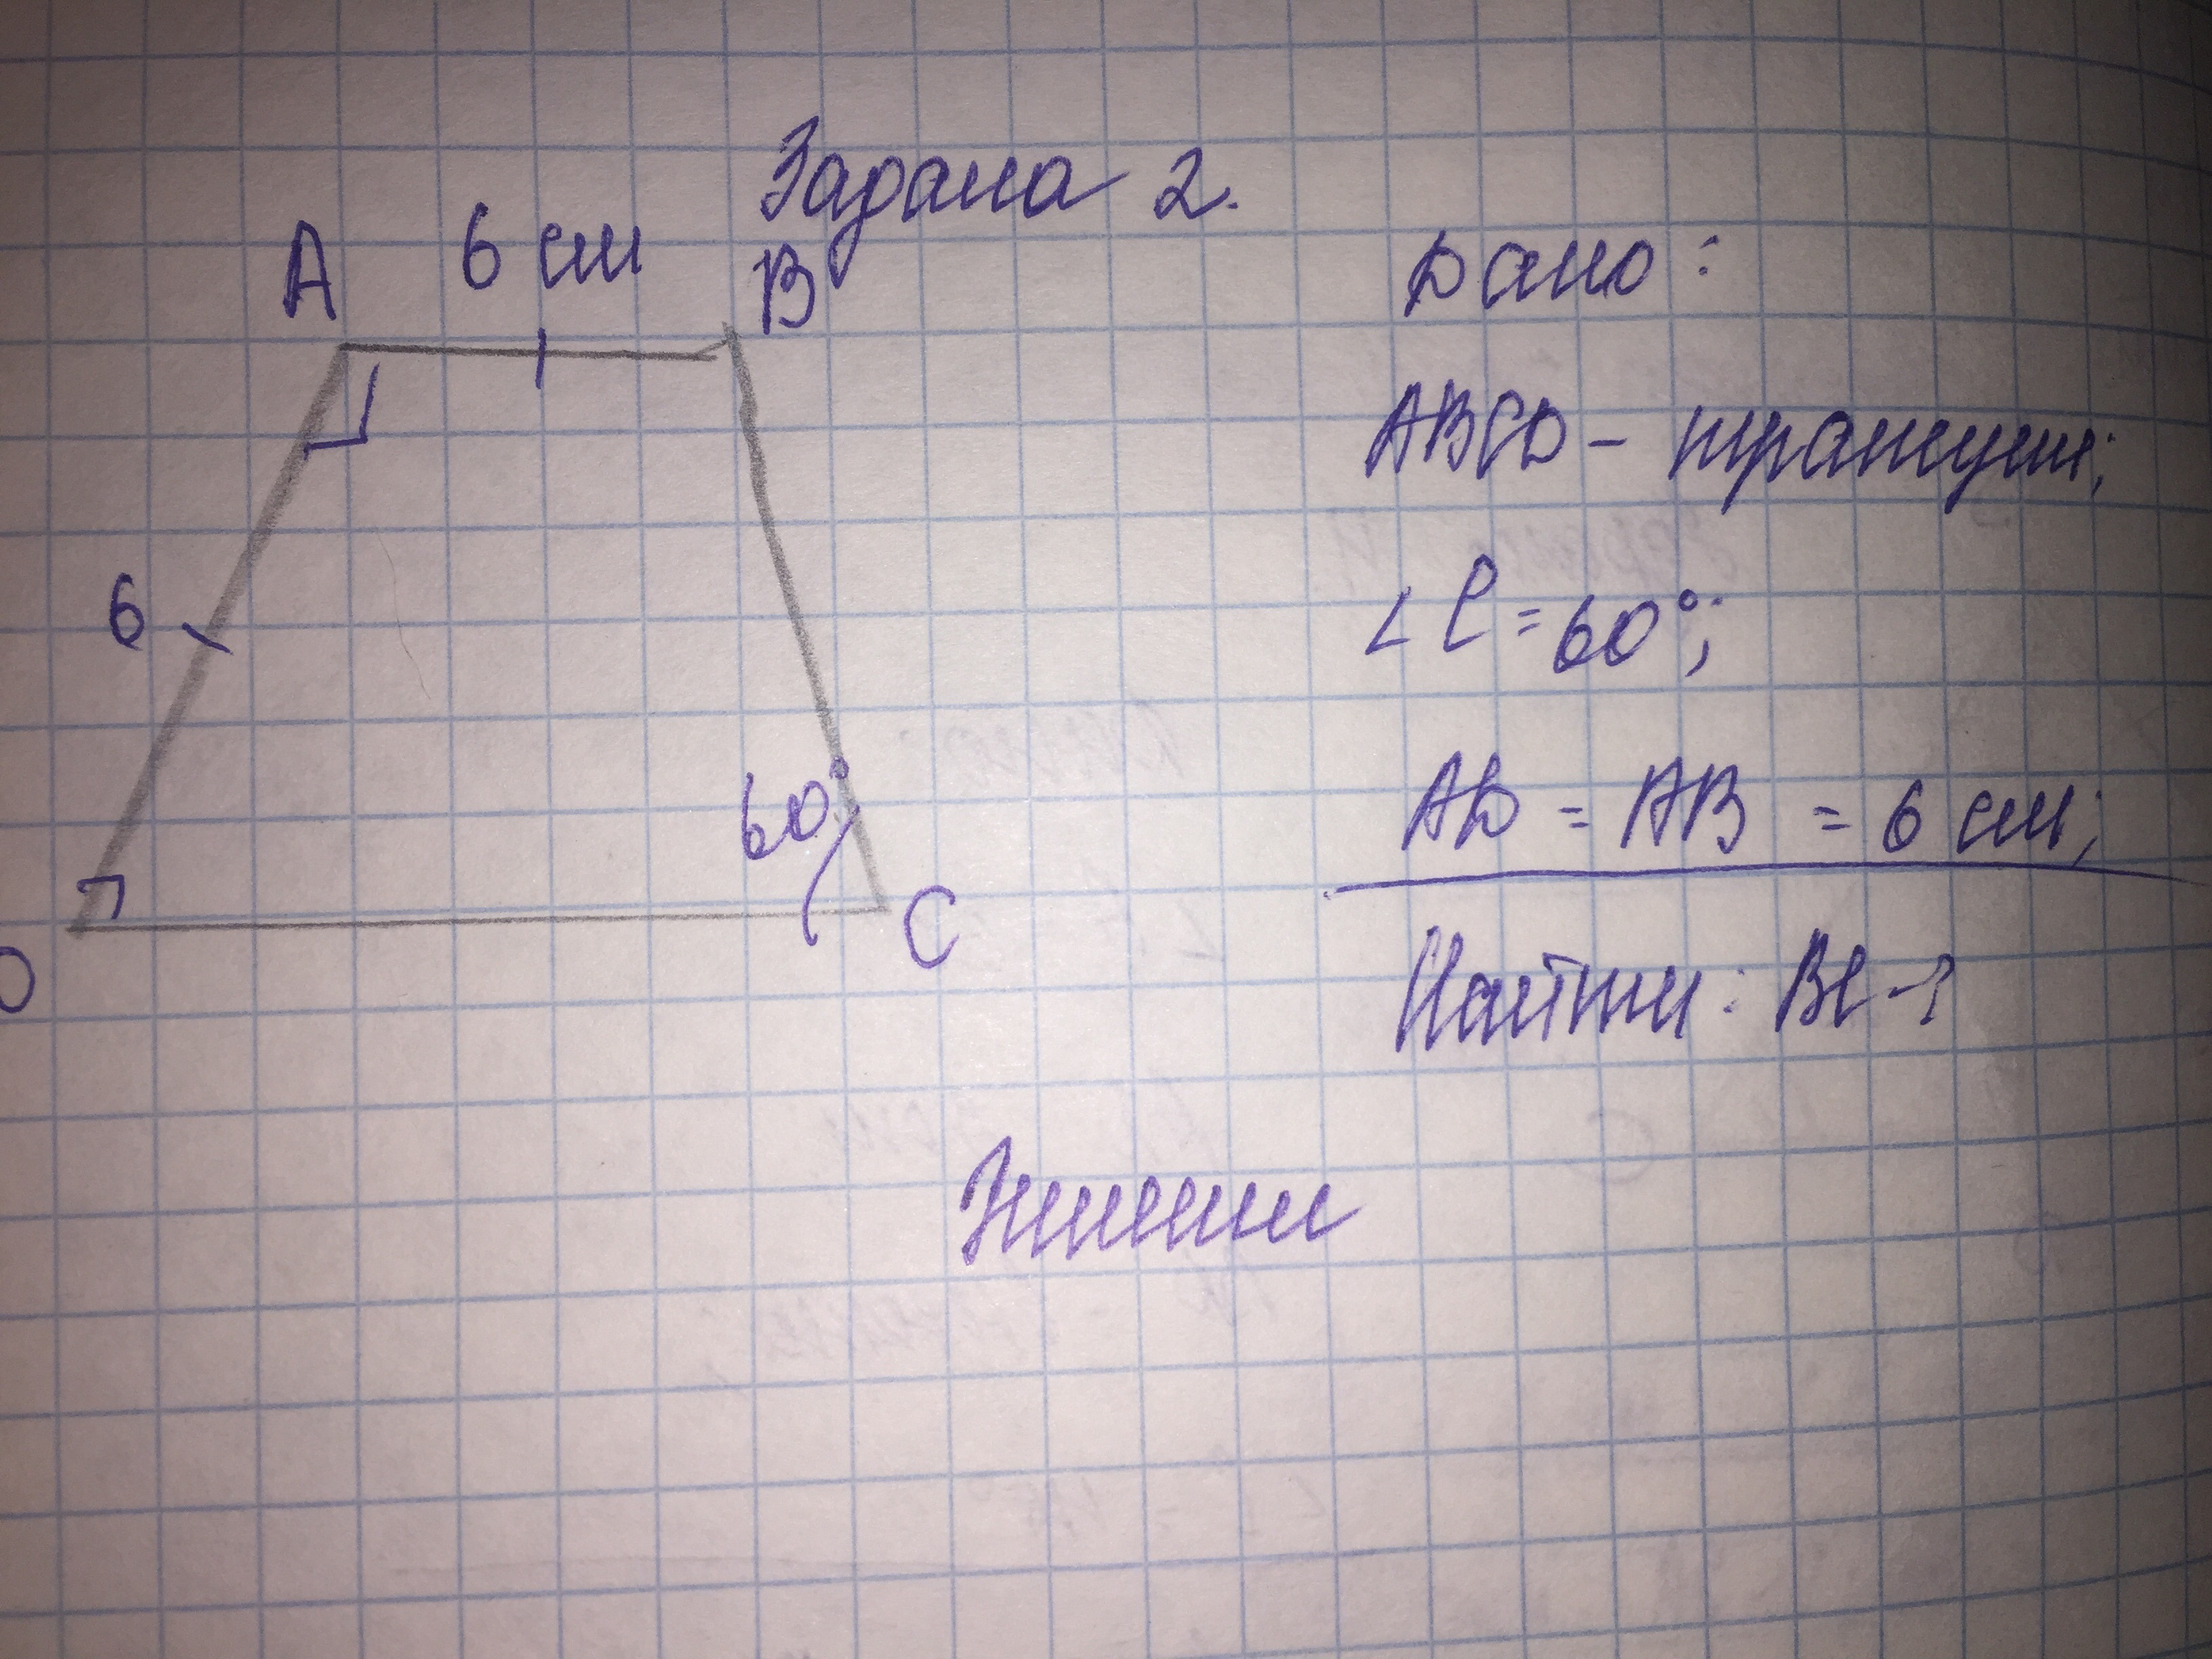 Задача 2.
A 6 см B
6
60°
D C
Дано:
ABCD - трапеция;
∠C = 60°;
AD = AB = 6 см;
Найти: BC - ?